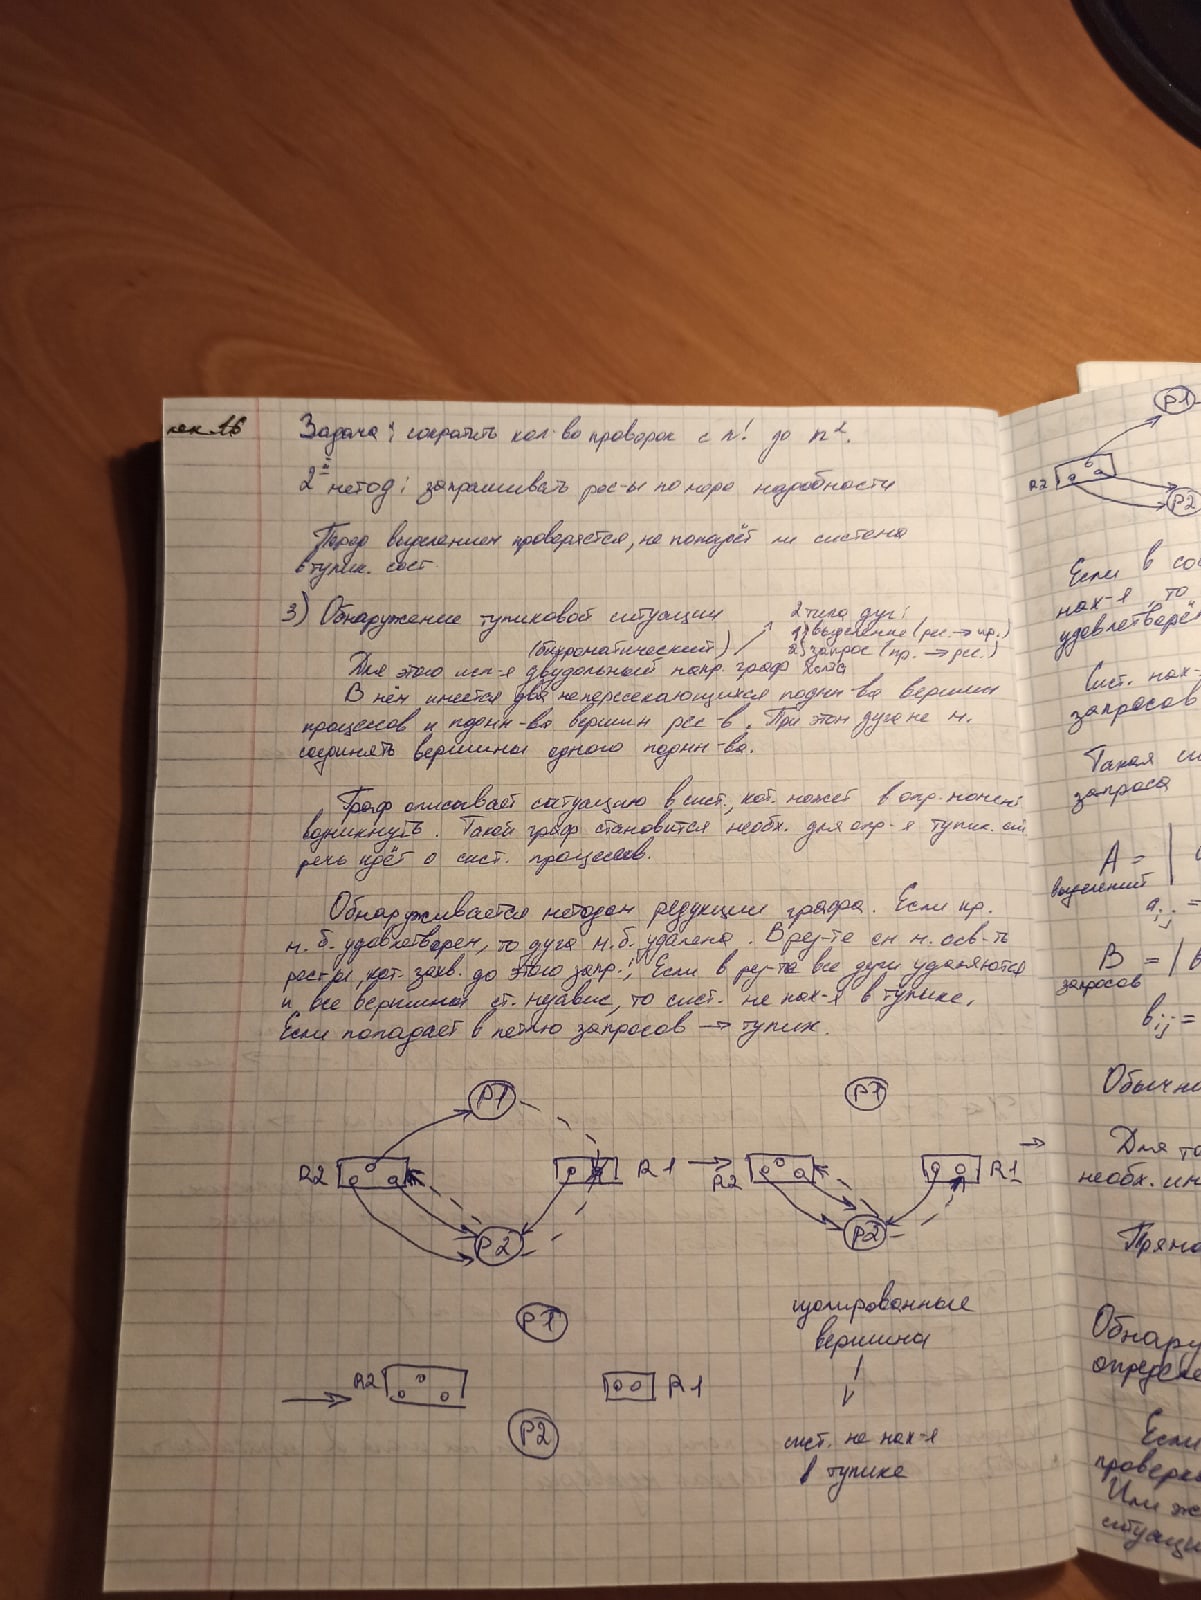 лек 16
Задача: сократить кол-во проверок с n! до n².
2ой метод: запрашивать рес-ы по мере надобности
Перед выделением проверяется, не попадёт ли система
в тупик. сост.
3) Обнаружение тупиковой ситуации
2 типа дуг:
1) выделение (рес. → пр.)
2) запрос (пр. → рес.)
(бихроматический)
Для этого исп-я двудольный напр. граф Холта
В нём имеется два непересекающихся подмн-ва вершин
процессов и подмн-ва вершин рес-в. При этом дуга не м.
соединять вершины одного подмн-ва.
Граф описывает ситуацию в сист., кот. может в опр. момент
возникнуть. Такой граф становится необх. для опр-я тупик. сит
речь идёт о сист. процессов.
Обнаруживается методом редукции графа. Если пр.
м. б. удовлетворен, то дуга м. б. удалена. В рез-те он м. осв-ть
рес-ы, кот. захв. до этого запр.; Если в рез-те все дуги удаляются
и все вершины ст. независ, то сист. не нах-я в тупике.
Если попадает в петлю запросов → тупик.
P1
R2
R1
P2
→
P1
R2
R1
P2
→
→
P1
R2
R1
P2
изолированные
вершины
сист. не нах-я
в тупике
P1
R2
P2
Если в сос
нах-я, то
удовлетворён
Сист. нах-
запросов
Такая си
запроса
A = |
выделений
aij =
B = | b
запросов
bij =
Обычно
Для то
необх. ин
Прямо
Обнару
определе
Если
проверк
Или же
ситуаци